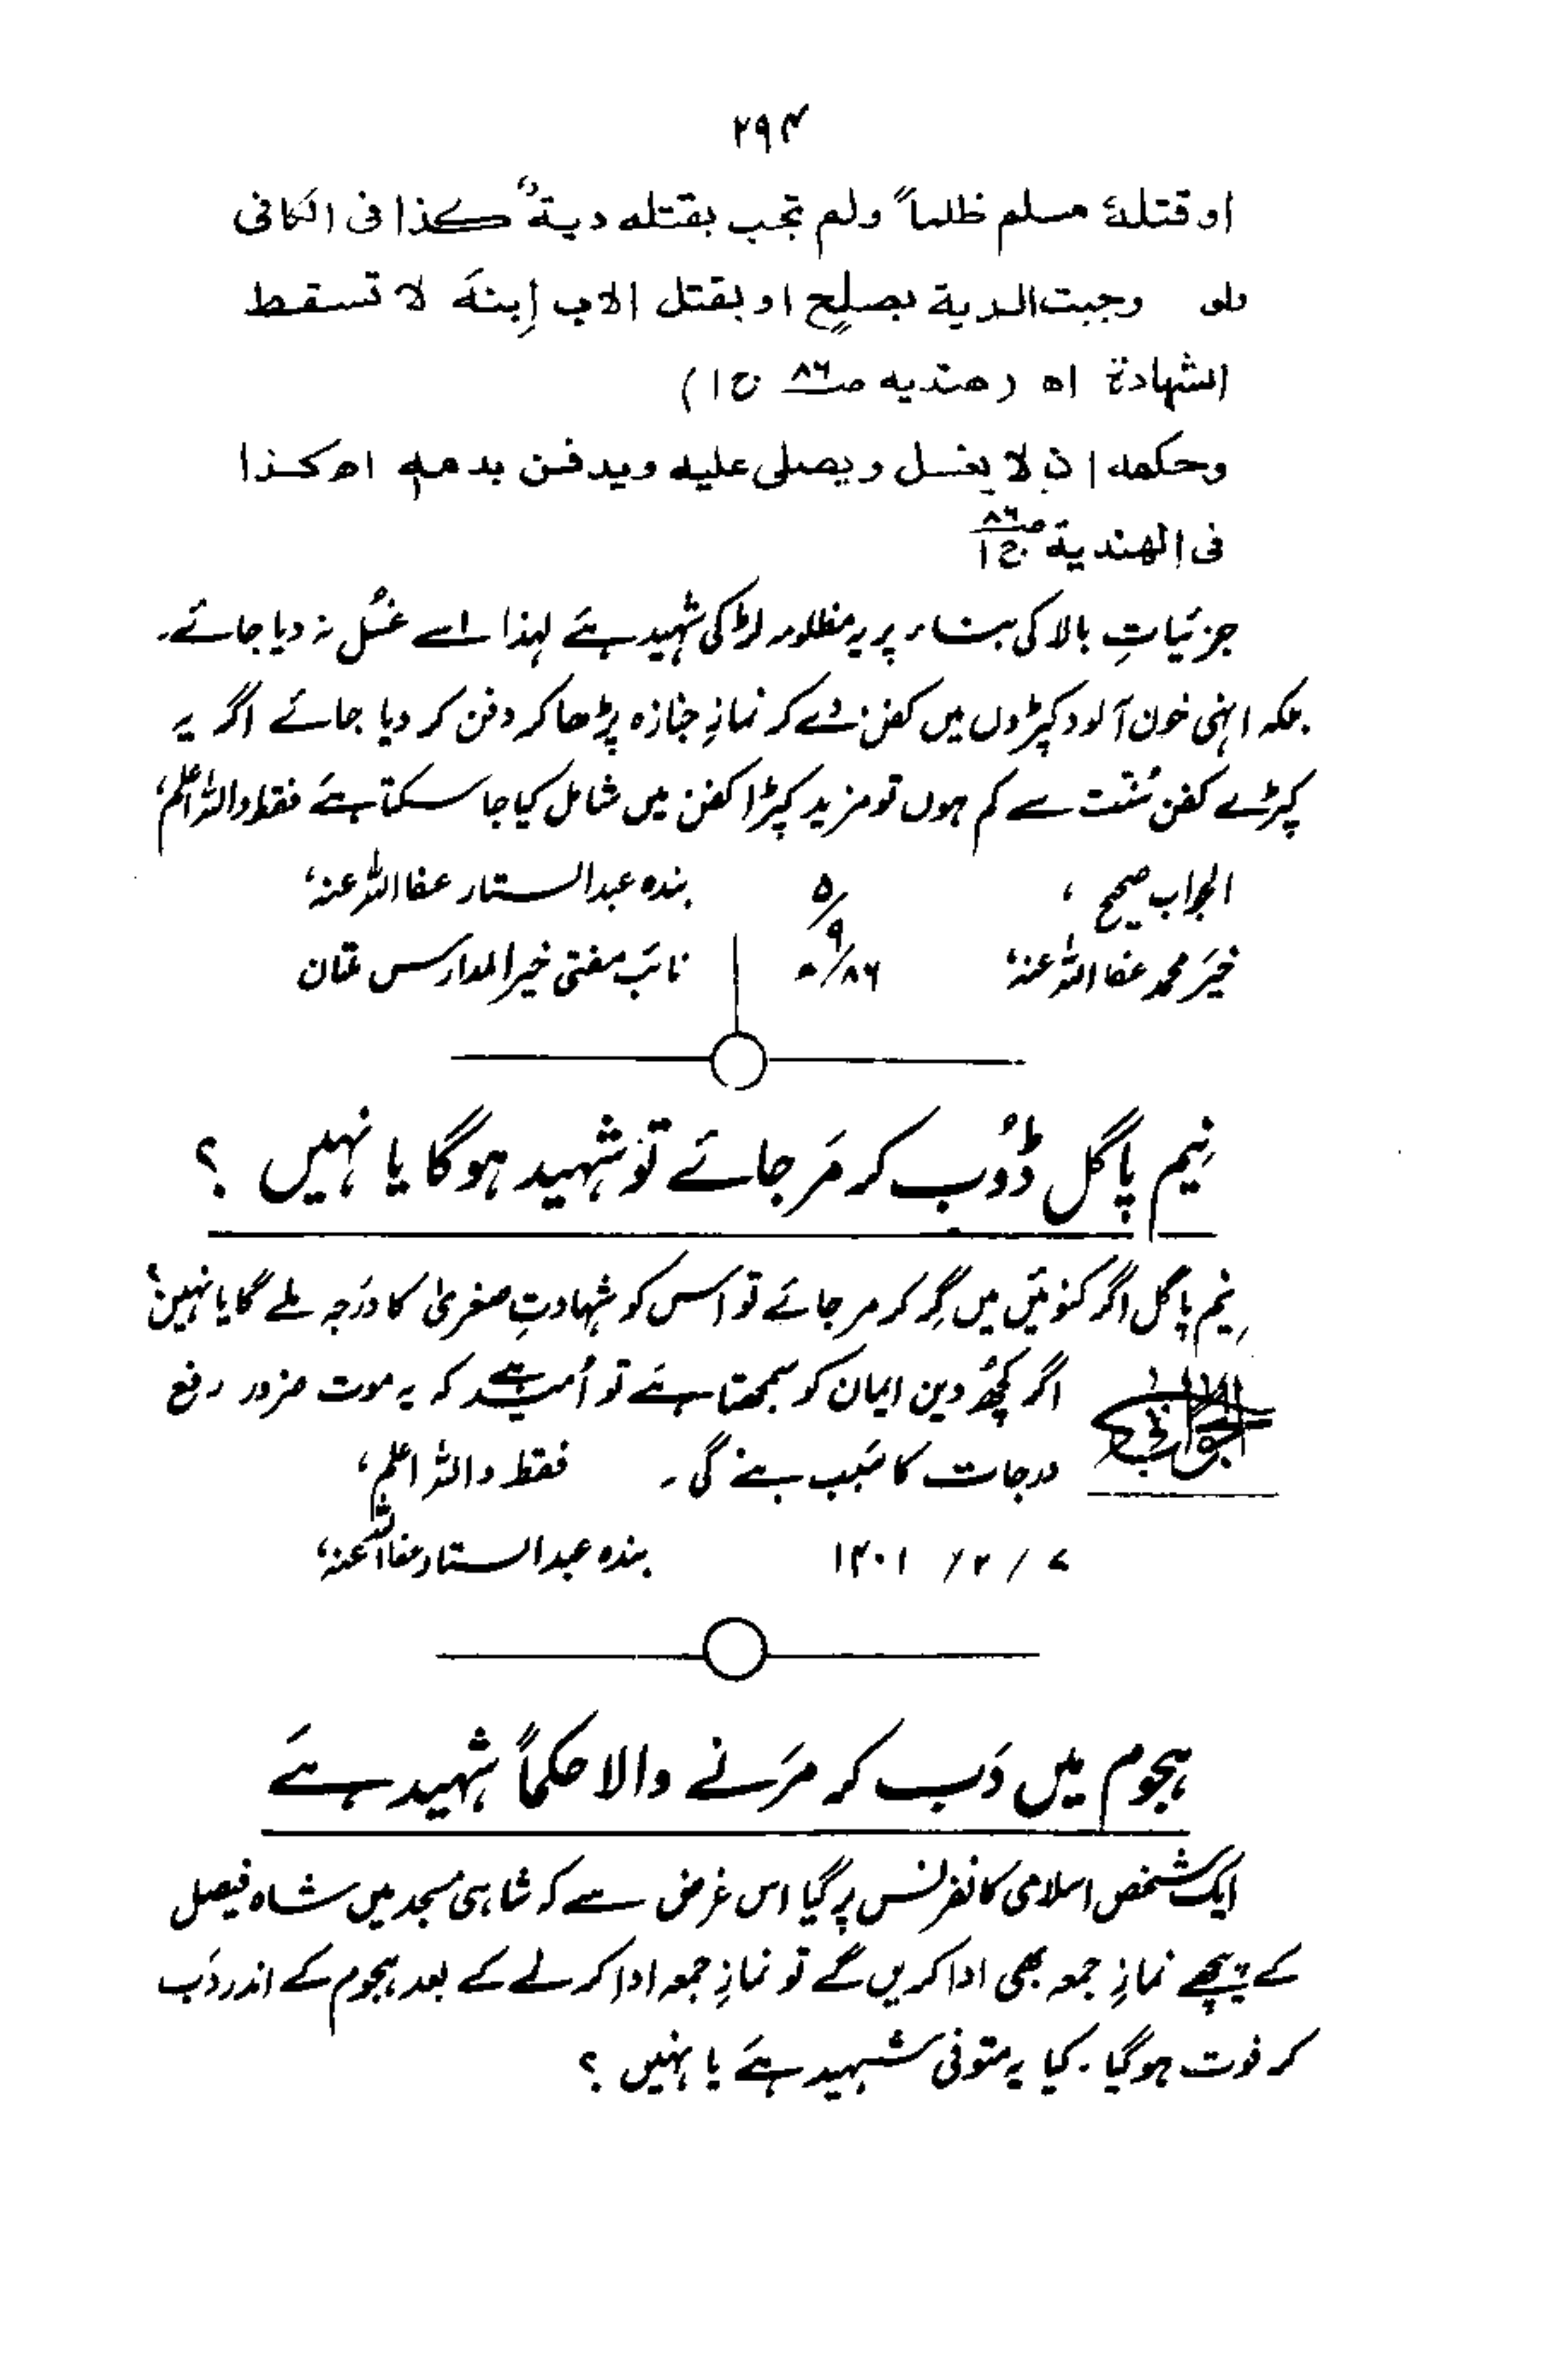 ۲۹۴
او قتلهٗ مسلم ظلماً ولم تجب بقتله ديةٌ كذا فى الكافى
ولو وجبت الدية بصلحٍ او بقتل الاب إبنهٗ لا تسقط
الشهادة اه (هنديه صـ۸۶ ج۱)
وحكمه ان لا يغسل ويصلى عليه ويدفن بدمهٖ اه كذا
فى الهندية صـ۸۶ ج۱
جزئیاتِ بالا کی بناء پر یہ مظلومہ لڑکی شہید ہے لہذا اسے غسُل نہ دیا جائے۔
بلکہ انہی خون آلود کپڑوں میں کفن دے کر نمازِ جنازہ پڑھا کر دفن کر دیا جائے اگر یہ
کپڑے کفنِ سُنّت سے کم ہوں تو مزید کپڑا کفن میں شامل کیا جا سکتا ہے فقط واللہ اعلم،
الجواب صحیح ، ۵/۹ بندہ عبدالستار عفا اللہ عنہ،
خیر محمد عفا اللہ عنہ، ۸۶ھ نائب مفتی خیر المدارس ملتان
نیم پاگل ڈُوب کر مَر جائے تو شہید ہوگا یا نہیں ؟
نیم پاگل اگر کنوئیں میں گِر کر مر جائے تو اس کو شہادتِ صغریٰ کا درَجہ ملے گا یا نہیں؟
الجواب اگر کچھُ دین ایمان کو سمجھتا ہے تو اُمید ہے کہ یہ موت ضرور رفع
درجات کا سَبب بنے گی۔ فقط واللہ اعلم،
۷ / ۲/ ۱۴۰۱ بندہ عبدالستار عفا اللہ عنہ،
ہجوم میں دَب کر مرَنے والا حکماً شہید ہےَ
ایک شخص اسلامی کانفرنس پر گیا اس غرض سے کہ شاہی مسجد میں شاہ فیصل
کے پیچھے نمازِ جمعہ بھی ادا کریں گے تو نمازِ جمعہ ادا کرنے کے بعد ہجوم کے اندر دَب
کر فوت ہو گیا۔ کیا یہ متوفی شہید ہےَ یا نہیں ؟